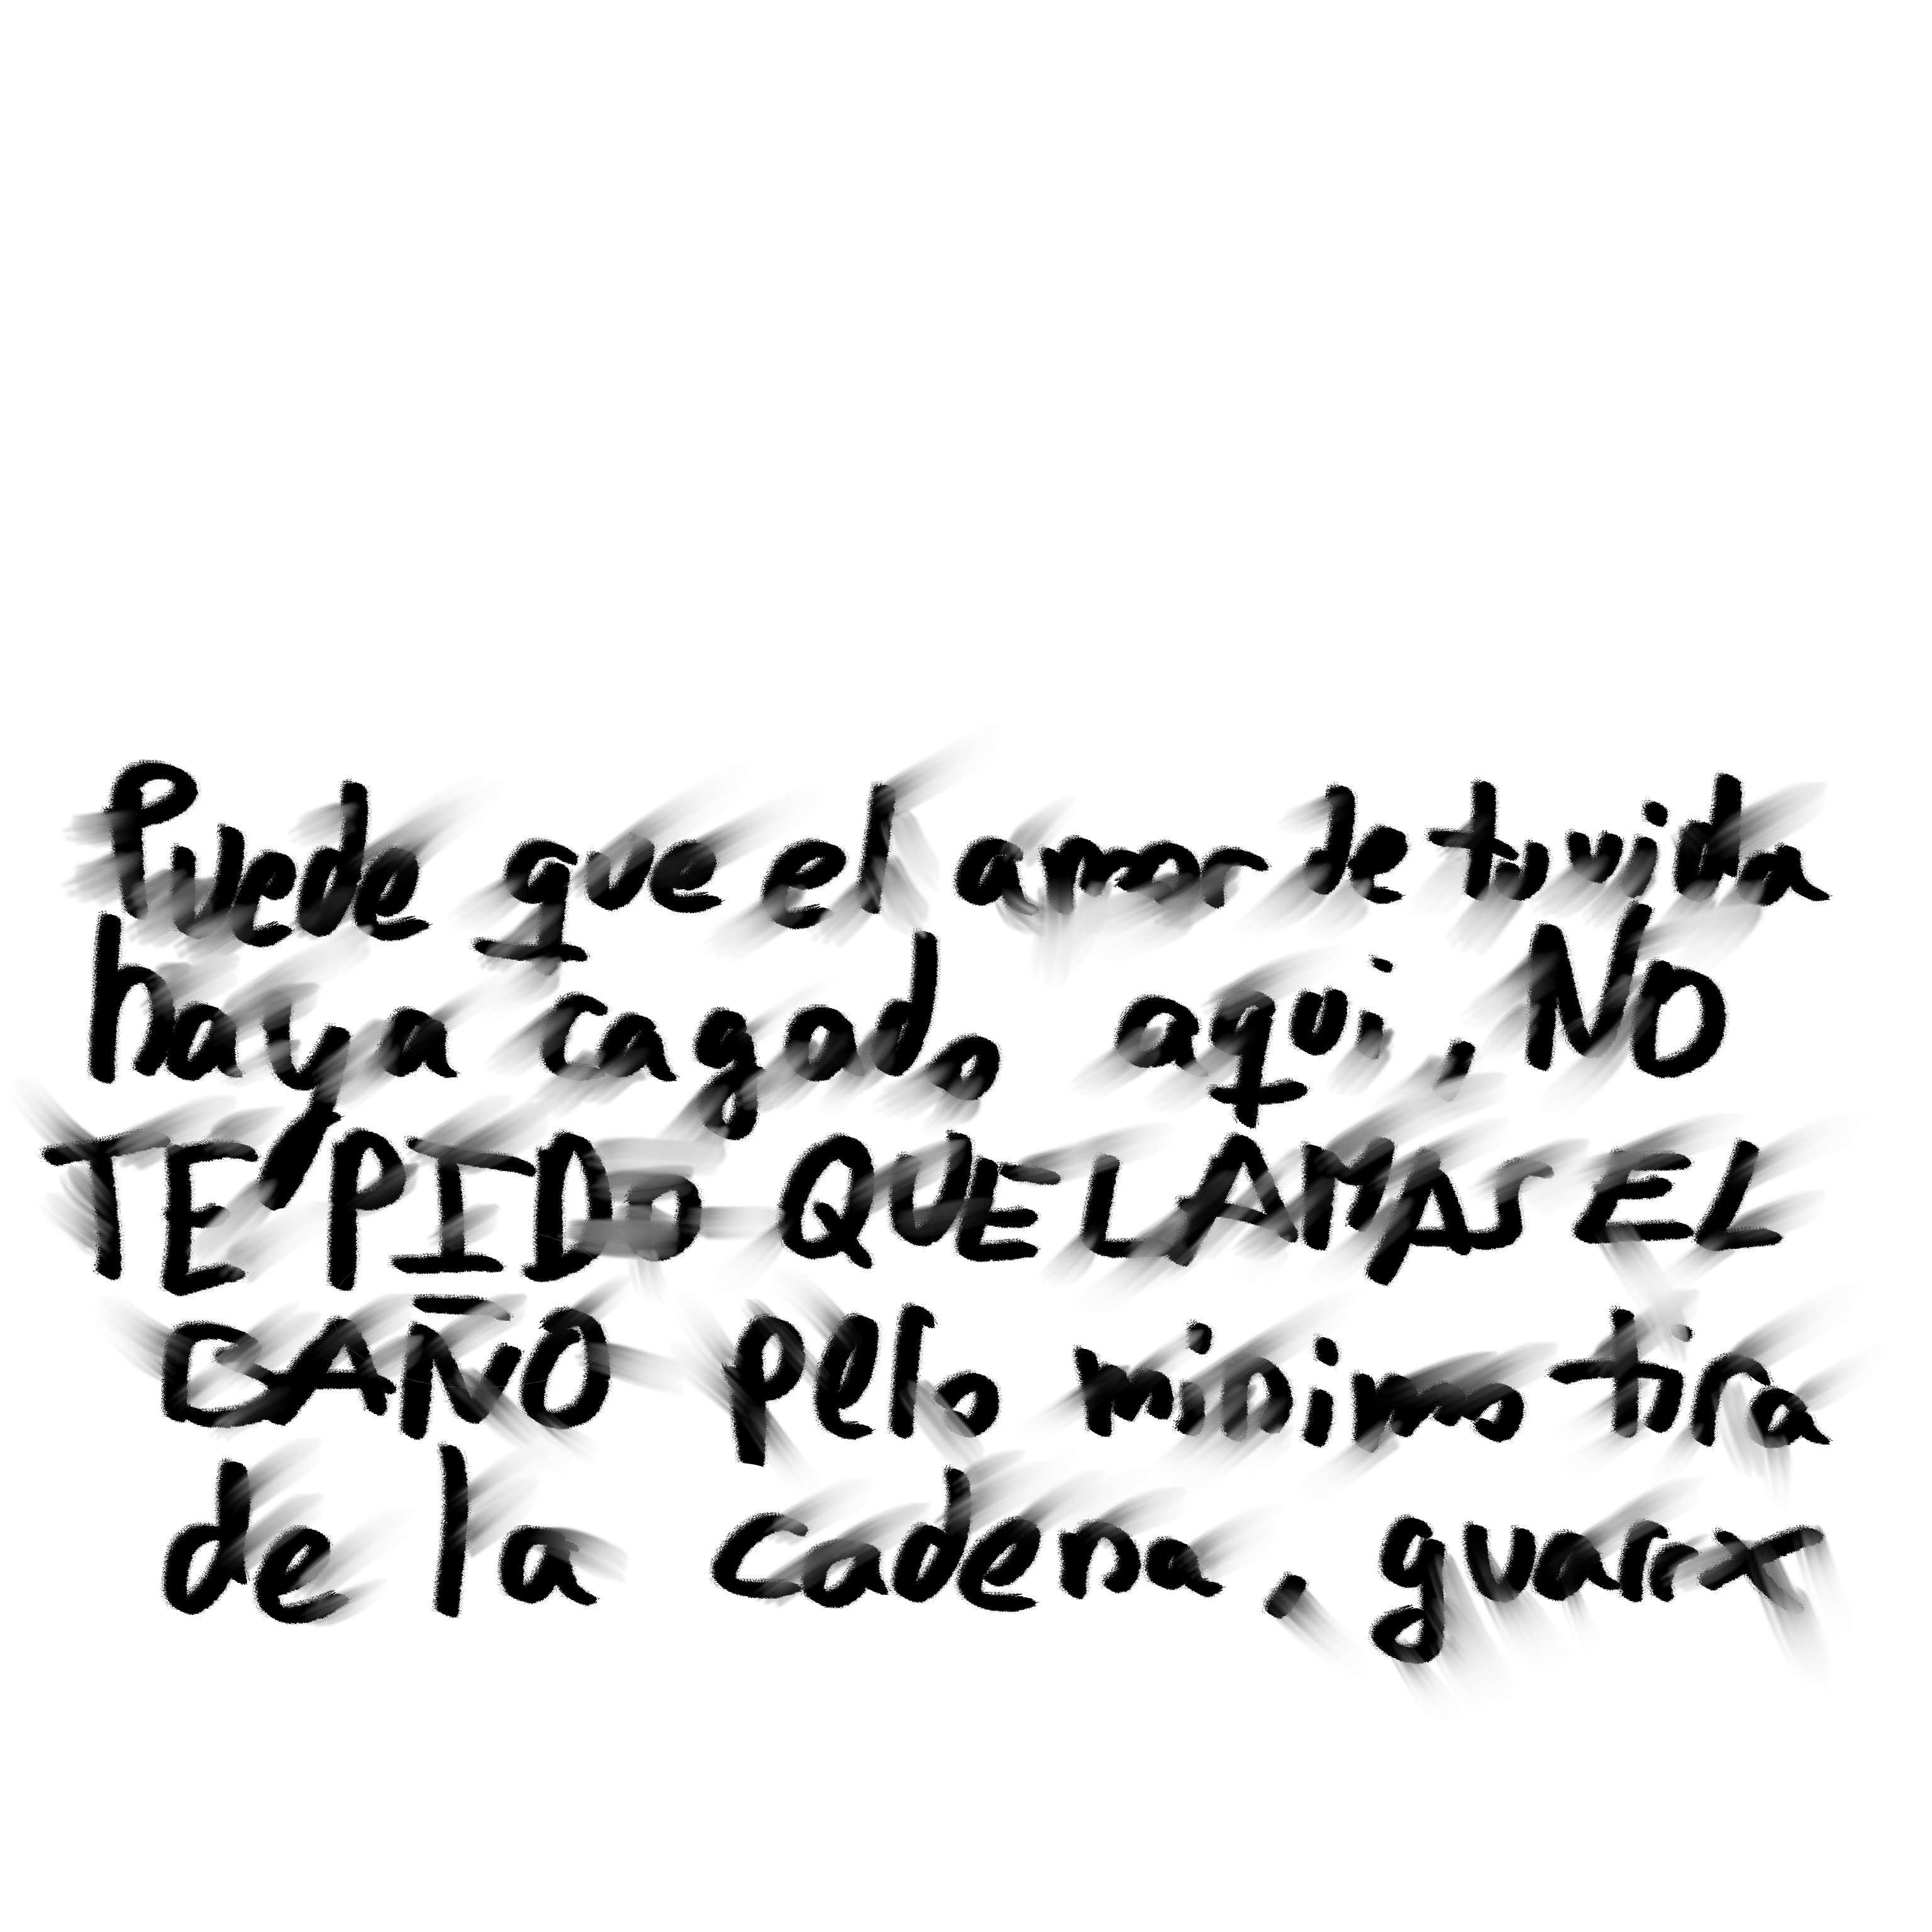 Puede que el amor de tu vida
haya cagado aqui, NO
TE PIDO QUE LAMAS EL
BAÑO pelo minimo tira
de la cadena, guarrx